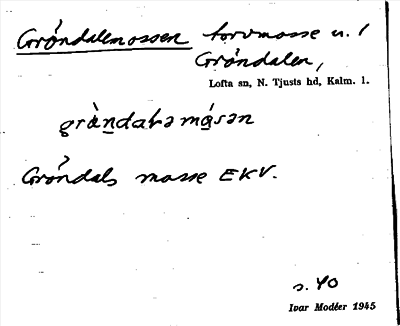 Gröndalemossen torvmosse u. /
Gröndalen,
Lofta sn, N. Tjusts hd, Kalm. l.
Gröndals mosse EKV.
s. 40
Ivar Modéer 1945